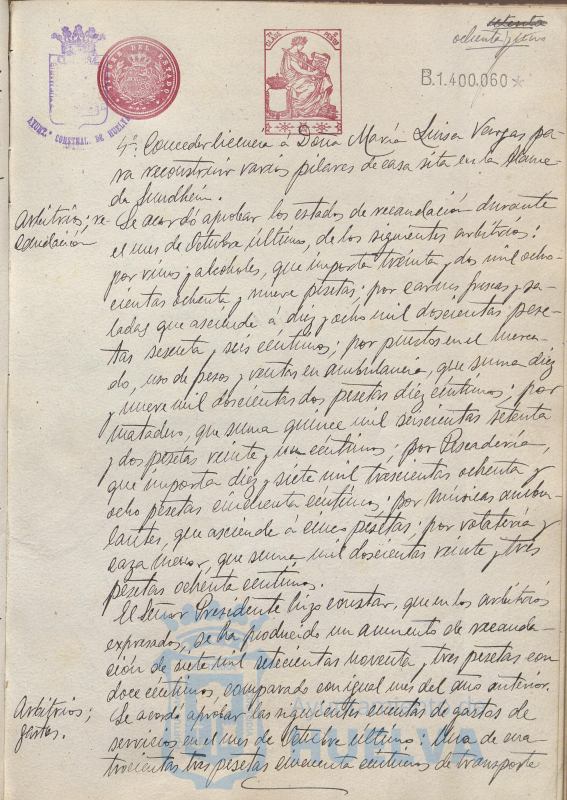 setenta
ochenta y uno
B.1.400.060*
AYUNT.º CONSTNAL. DE HUELVA
4º Conceder licencia á Doña María Luisa Vargas pa-
ra reconstruir varios pilares de casa sita en la Alame-
da Sundheim.
Arbitrios; re-
caudación
Se acordó aprobar los estados de recaudación durante
el mes de Octubre último, de los siguientes arbitrios:
por vinos y alcoholes, que importa treinta y dos mil ocho-
cientas ochenta y nueve pesetas; por carnes frescas y sa-
ladas que asciende á diez y ocho mil doscientas pese-
tas sesenta y seis céntimos; por puestos en el merca-
do, uso de pesos y ventas en ambulancia, que suma diez
y nueve mil doscientas dos pesetas diez céntimos; por
matadero, que suma quince mil seiscientas setenta
y dos pesetas veinte y un céntimos; por Pescadería,
que importa diez y siete mil trescientas ochenta y
ocho pesetas cincuenta céntimos; por músicas ambu-
lantes, que asciende á cinco pesetas; por volatería y
caza menor, que suma mil doscientas veinte y tres
pesetas ochenta céntimos.
El Señor Presidente hizo constar, que en los arbitrios
expresados, se ha producido un aumento de recauda-
ción de siete mil setecientas noventa y tres pesetas con
doce céntimos, comparado con igual mes del año anterior.
Arbitrios;
gastos.
Se acordó aprobar las siguientes cuentas de gastos de
servicios en el mes de Octubre último: Una de cua-
trocientas tres pesetas cincuenta céntimos de transporte
Ayuntamiento de
HUELVA